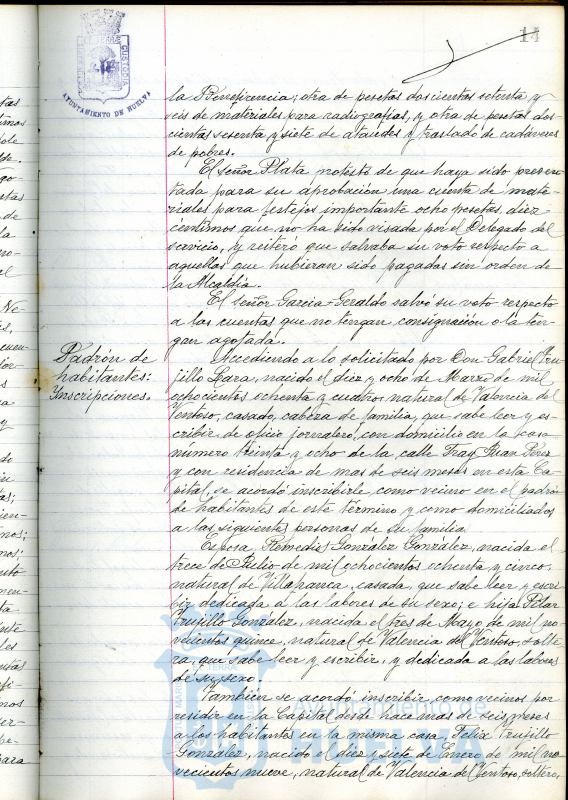 14
AYUNTAMIENTO DE HUELVA
la Beneficencia; otra de pesetas doscientas setenta y
seis de materiales para radiografías, y otra de pesetas dos-
cientas sesenta y siete de ataudes y traslado de cadáveres
de pobres.
El señor Plata protestó de que haya sido presen-
tada para su aprobación una cuenta de mate-
riales para festejos importante ocho pesetas, diez
céntimos que no ha sido visada por el Delegado del
servicio, y reiteró que salvaba su voto respecto a
aquellas que hubieran sido pagadas sin orden de
la Alcaldía.
El señor Garcia-Geraldo salvó su voto respecto
a las cuentas que no tengan consignación o la ten-
gan agotada.
Padrón de
habitantes:
Inscripciones.
Accediendo a lo solicitado por Don Gabriel Tru-
jillo Lara, nacido el diez y ocho de Marzo de mil
ochocientos ochenta y cuatro natural de Valencia del
Ventoso, casado, cabeza de familia, que sabe leer y es-
cribir, de oficio jornalero, con domicilio en la casa
número treinta y ocho de la calle Fray Juan Pérez
y con residencia de mas de seis meses en esta Ca-
pital, se acordó inscribirle como vecino en el padrón
de habitantes de este término y como domiciliados
a las siguientes personas de su familia.
Esposa, Remedios González González, nacida el
trece de Julio de mil ochocientos ochenta y cinco,
natural de Villafranca, casada, que sabe leer y escri-
bir, dedicada a las labores de su sexo; e hija Pilar
Trujillo González, nacida el tres de Mayo de mil no-
vecientos quince, natural de Valencia del Ventoso, solte-
ra, que sabe leer y escribir, y dedicada a las labores
de su sexo.
También se acordó inscribir como vecinos por
residir en la Capital desde hace mas de seis meses
a los habitantes en la misma casa, Felix Trujillo
González, nacido el diez y siete de Enero de mil no-
vecientos nueve, natural de Valencia del Ventoso, soltero,
Ayuntamiento de
HUELVA